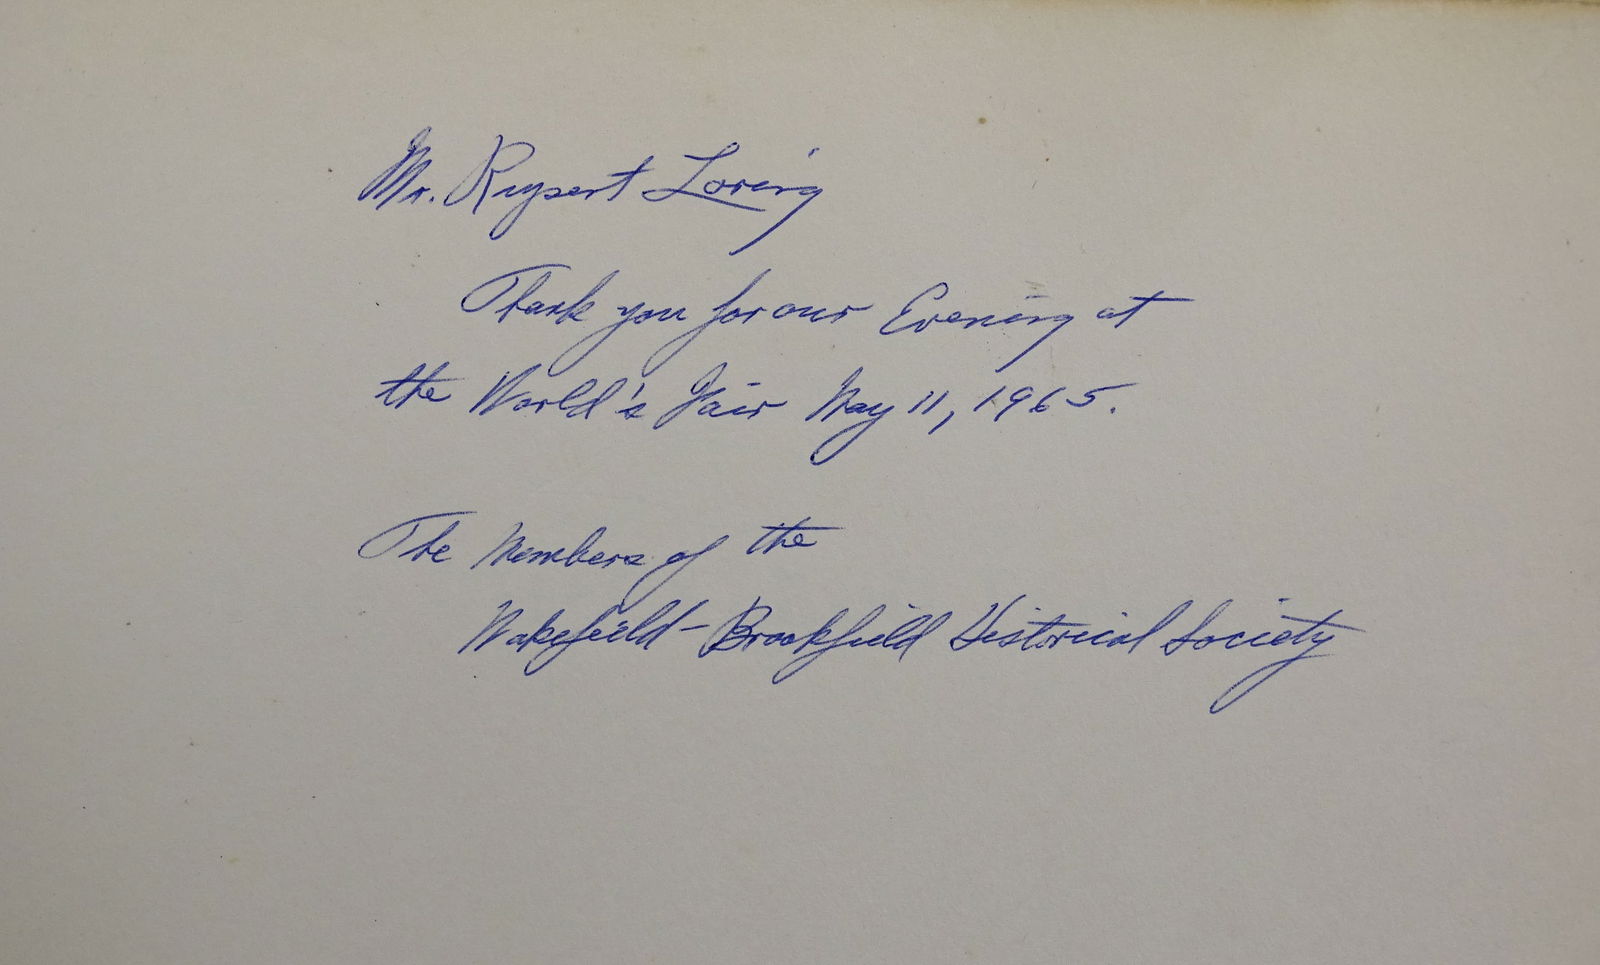 Mr. Rupert Loring
Thank you for our Evening at
the World's Fair May 11, 1965.
The Members of the
Wakefield-Brookfield Historical Society